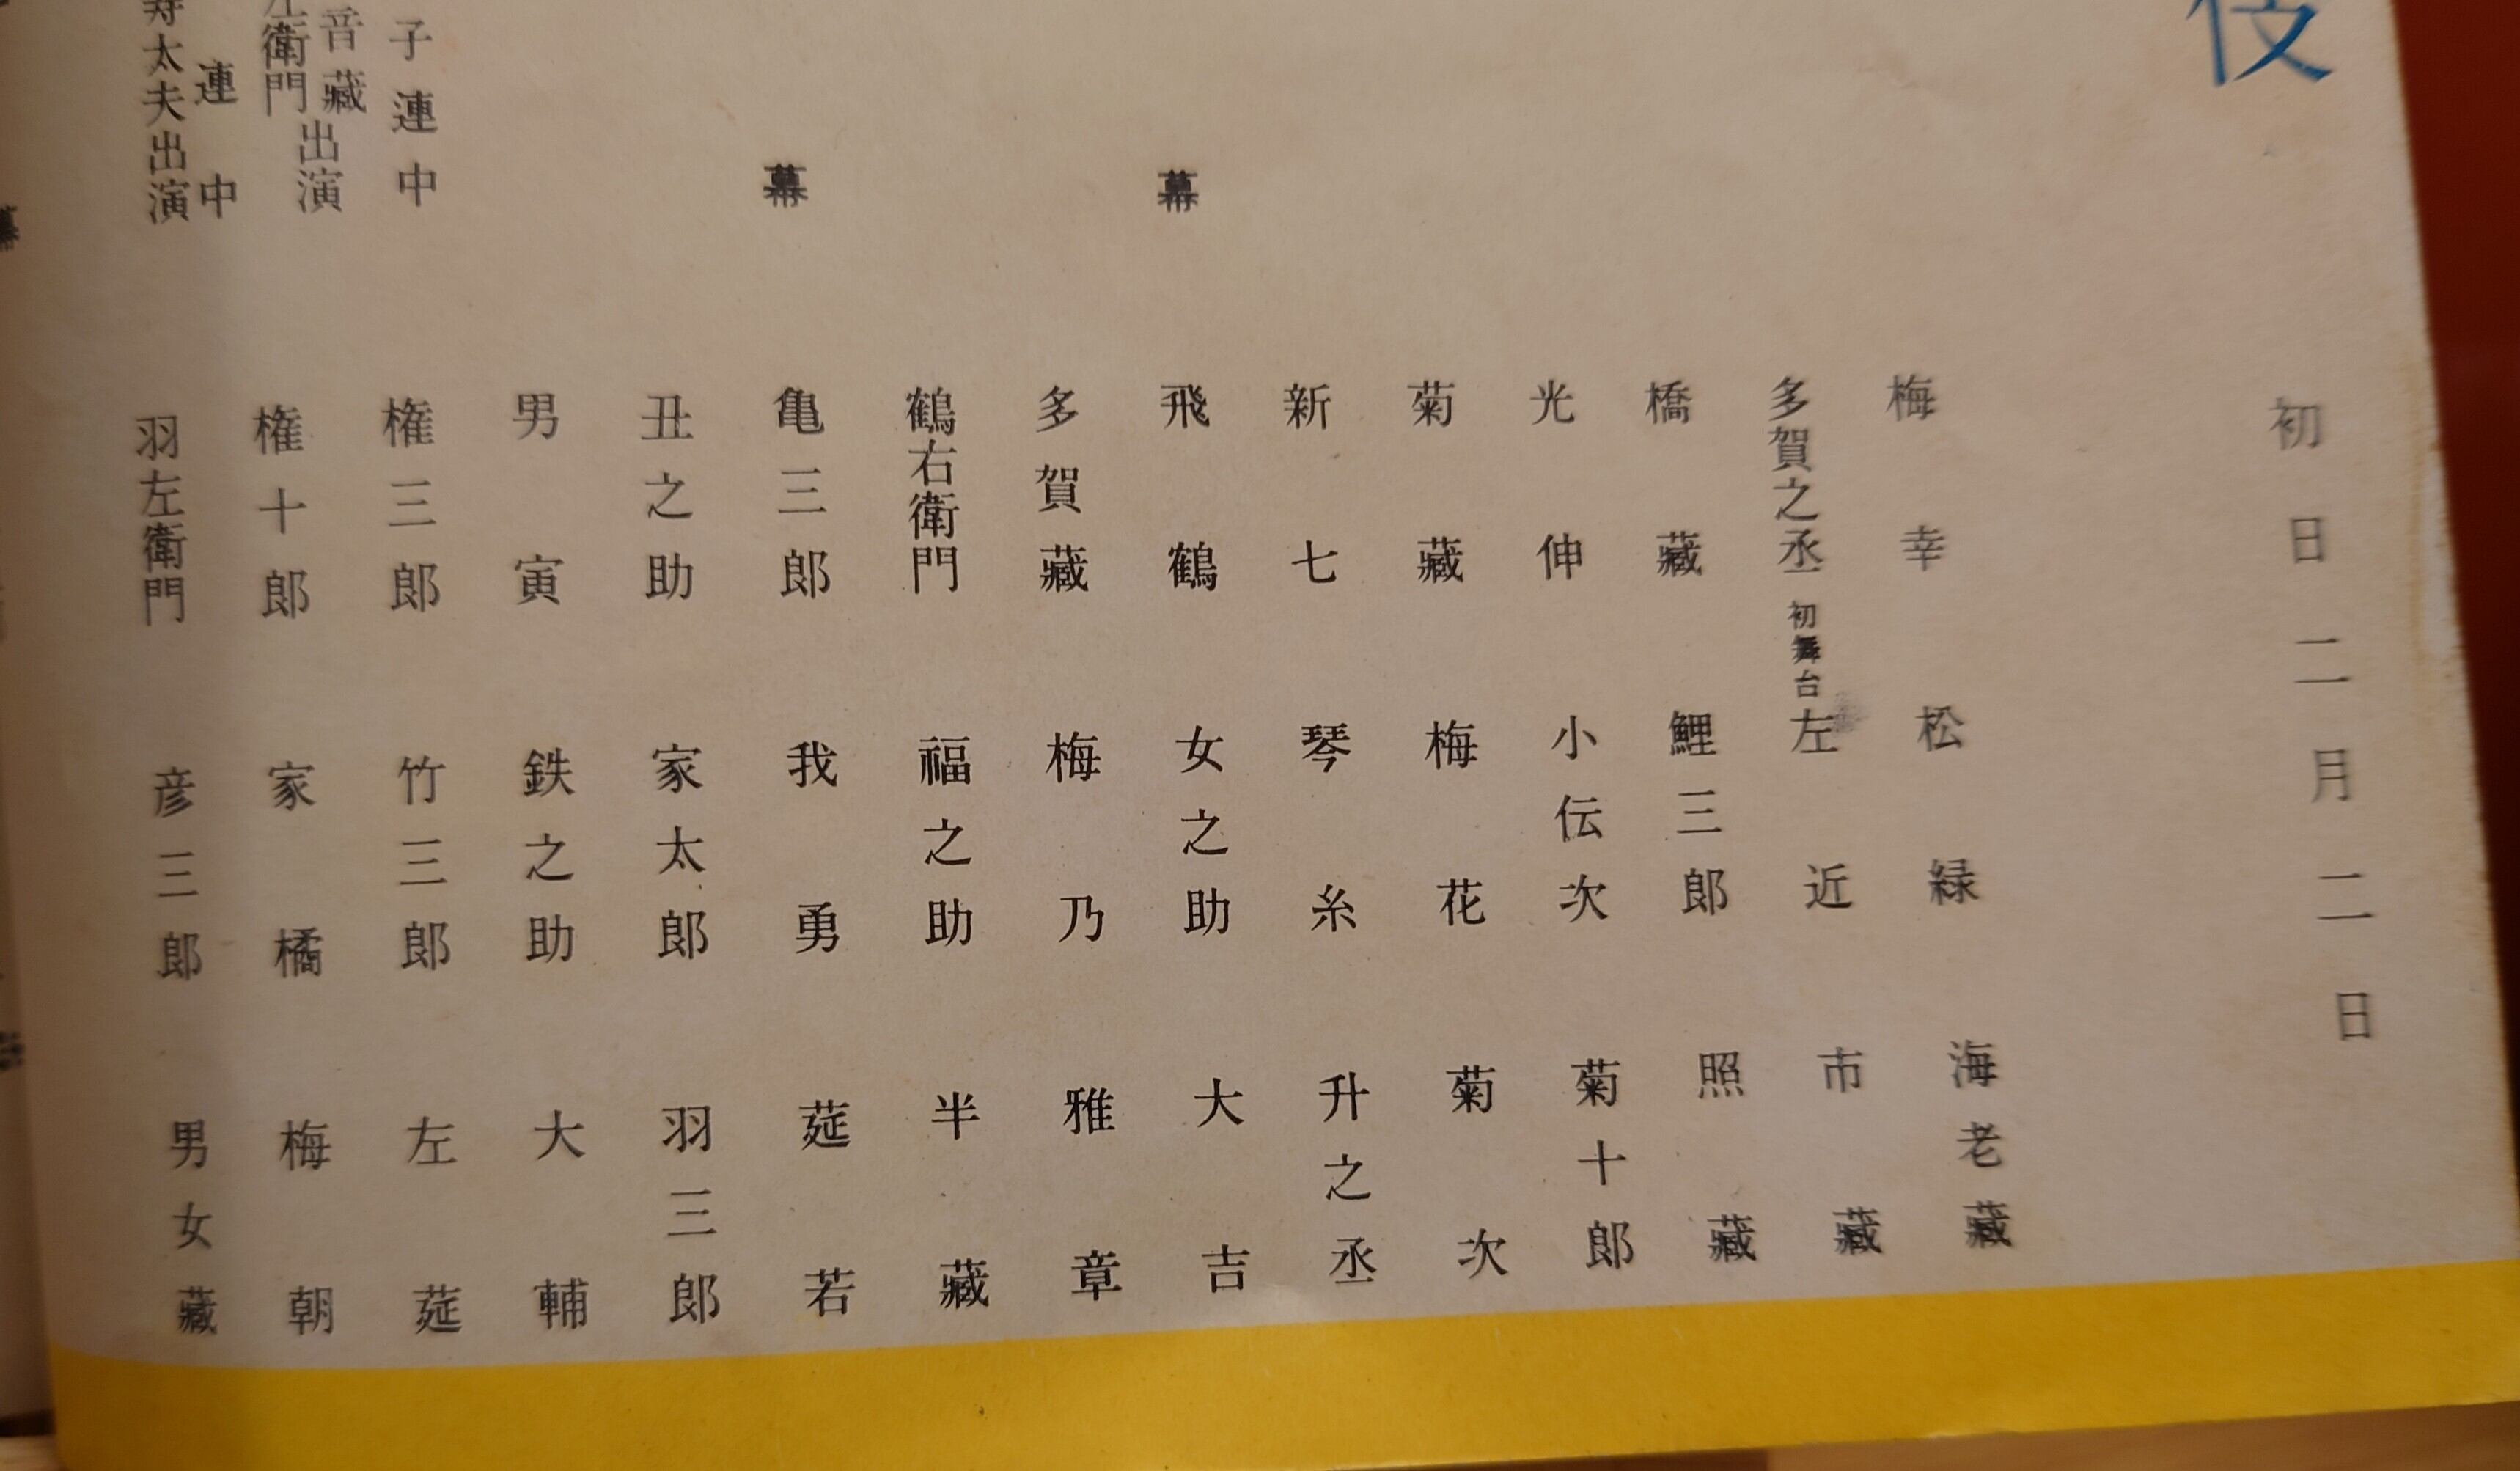 伎
初日二月二日
幕
幕
子連中
音藏
衛門
出演
連中
太夫出演
梅幸 松緑 海老藏
多賀之丞 初舞台 左近 市藏
橋藏 鯉三郎 照藏
光伸 小伝次 菊十郎
菊藏 梅花 菊次
新七 琴糸 升之丞
飛鶴 女之助 大吉
多賀藏 梅乃 雅章
鶴右衛門 福之助 半藏
亀三郎 我勇 莚若
丑之助 家太郎 羽三郎
男寅 鉄之助 大輔
権三郎 竹三郎 左莚
権十郎 家橘 梅朝
羽左衛門 彦三郎 男女藏